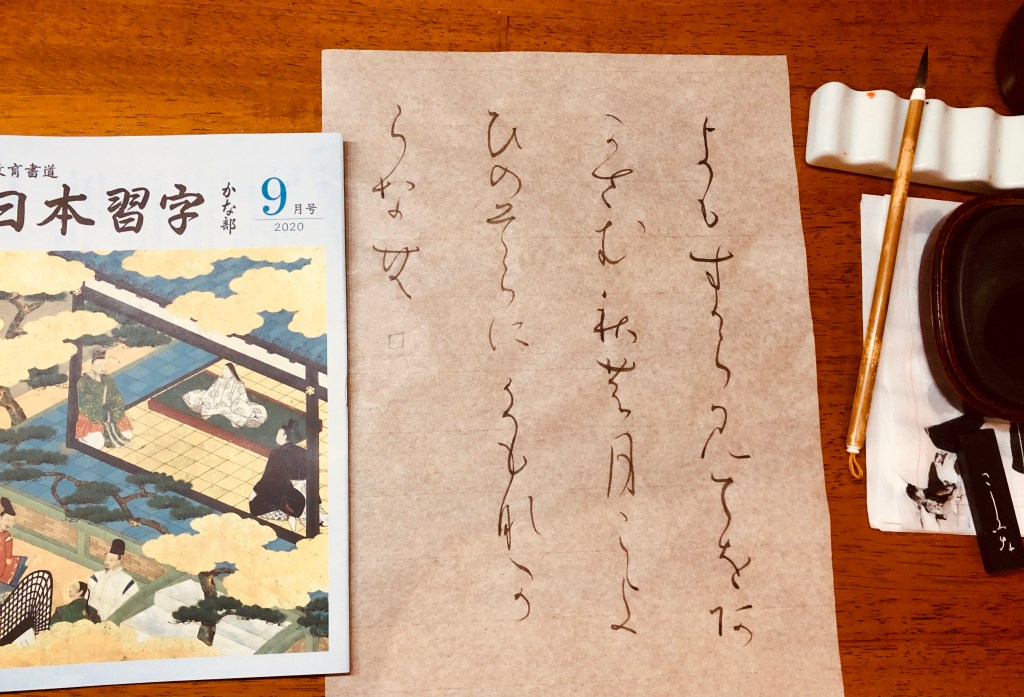 教育書道
日本習字
かな部
9月号
2020
よもすから見てをあ
かさむ秋の月こよ
ひのそらにくもなか
らなむ